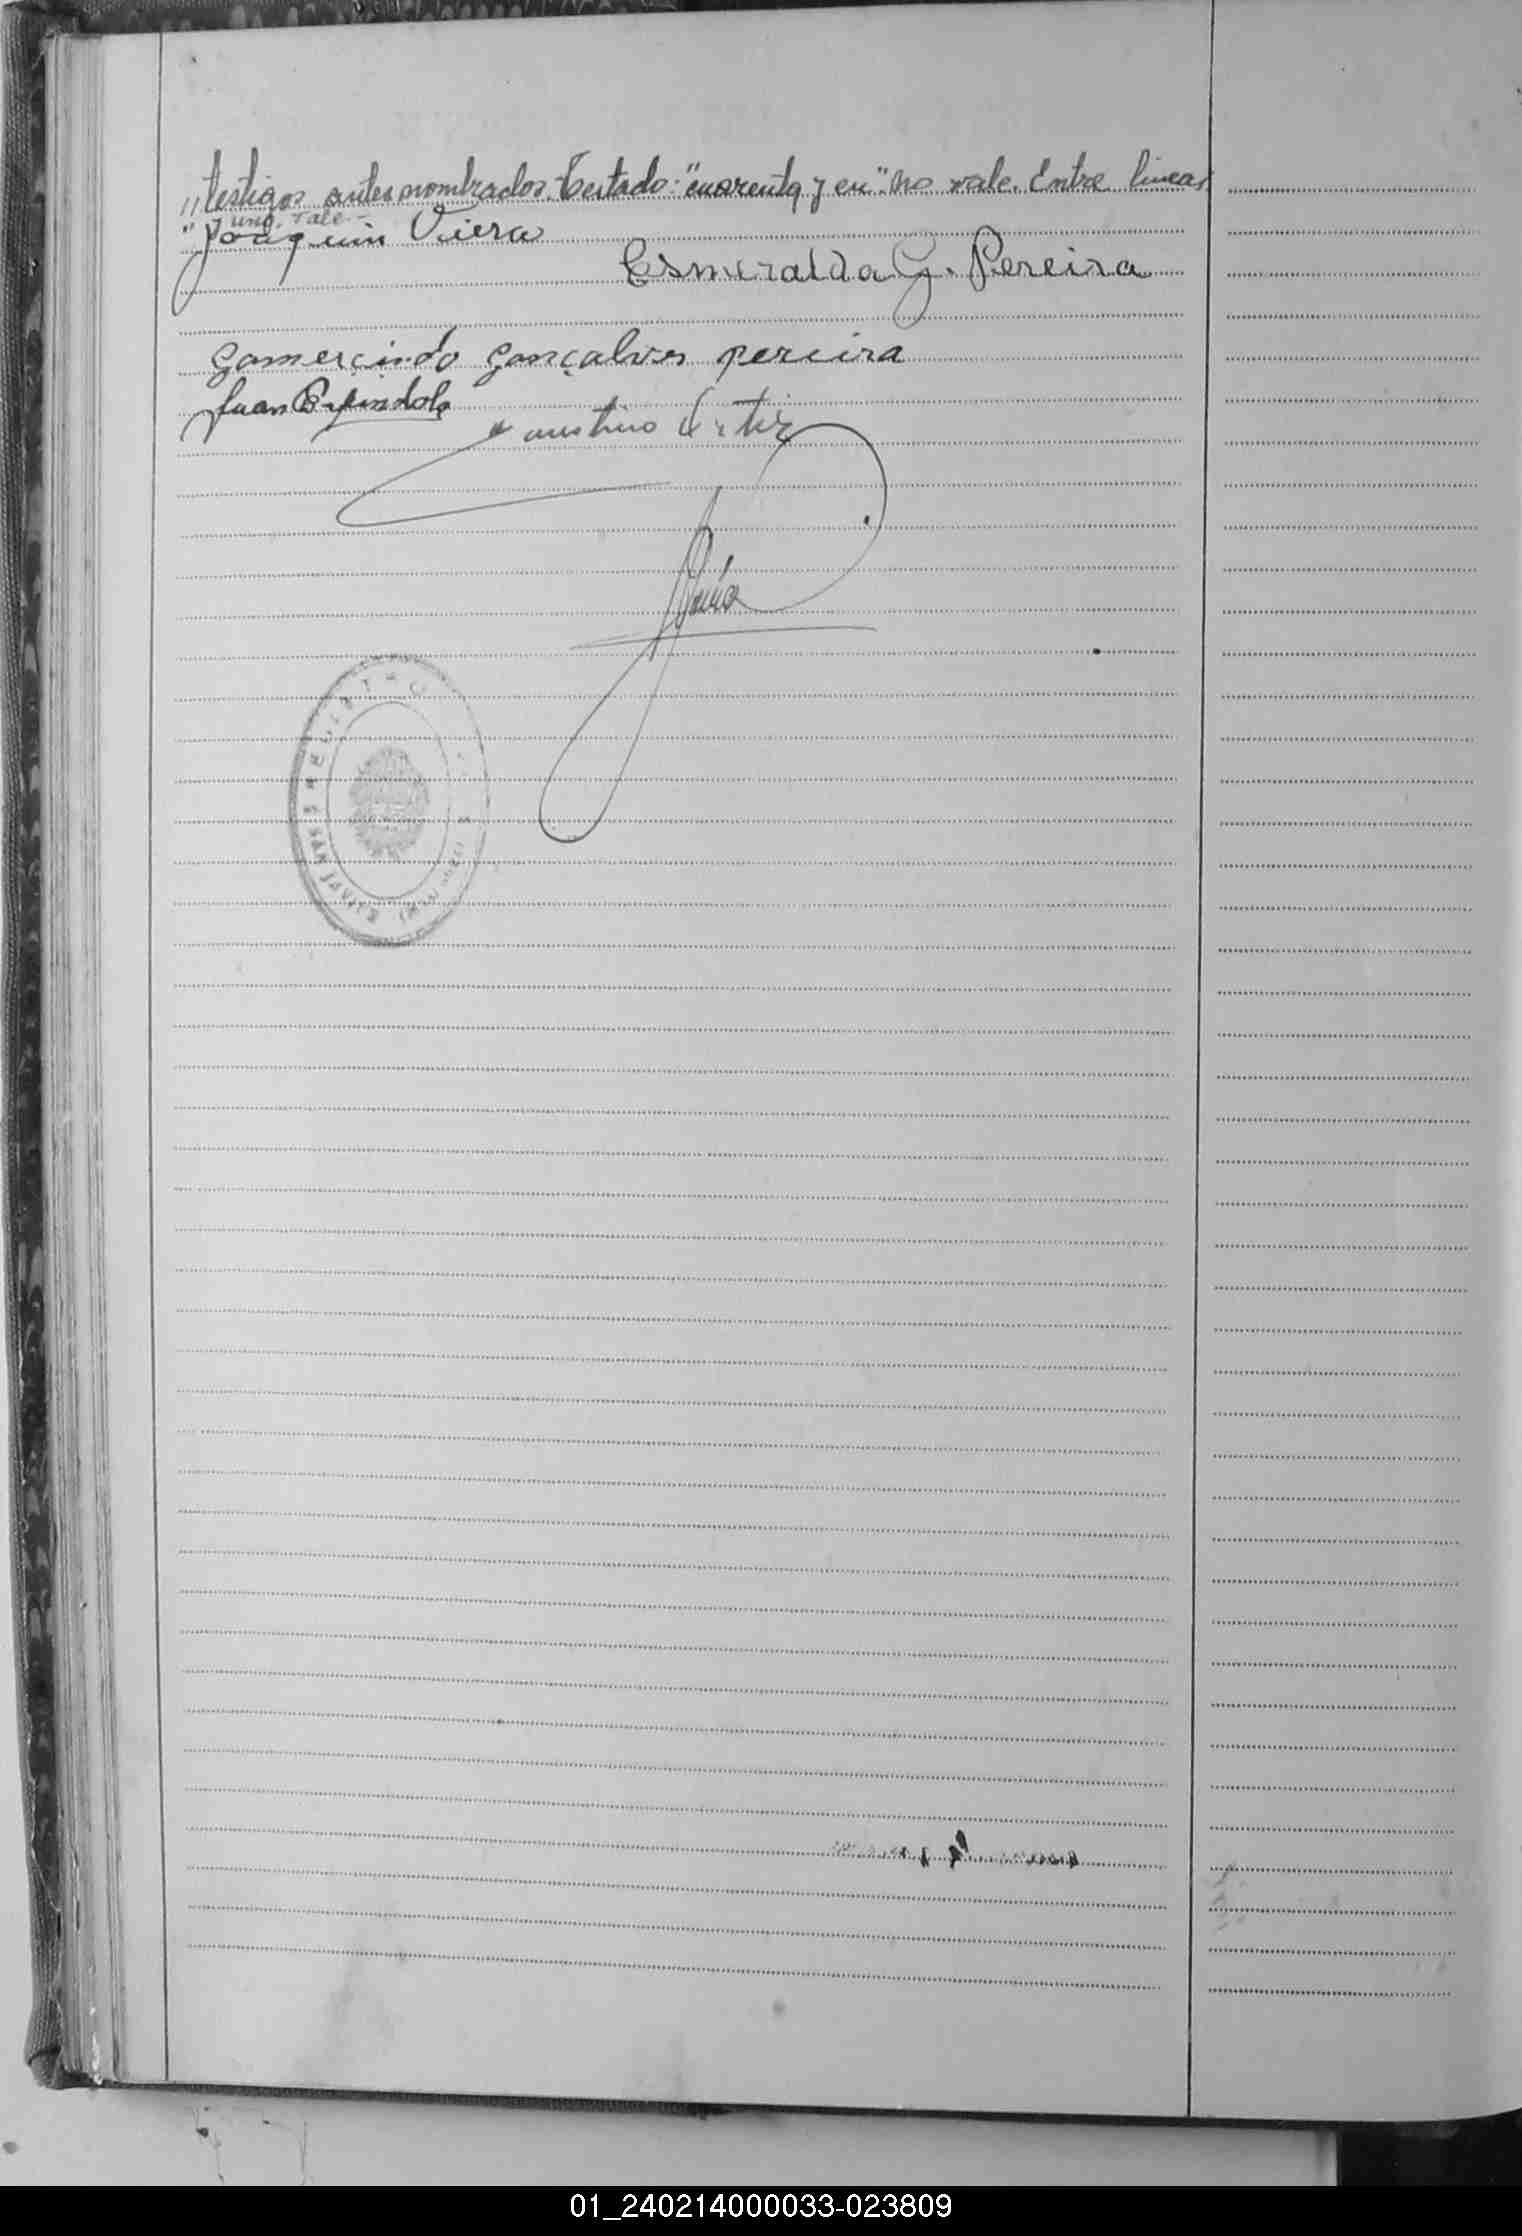 "testigos antes nombrados. Testado: "cuarenta y en" No vale. Entre lineas
"y uno. Vale.-
Joaquin Viera
Esmeralda G. Pereira
Gomerçindo gonçalves pereira
Juan Espindola
Faustino Ortiz
REGISTRO
SAN JAVIER
01_240214000033-023809